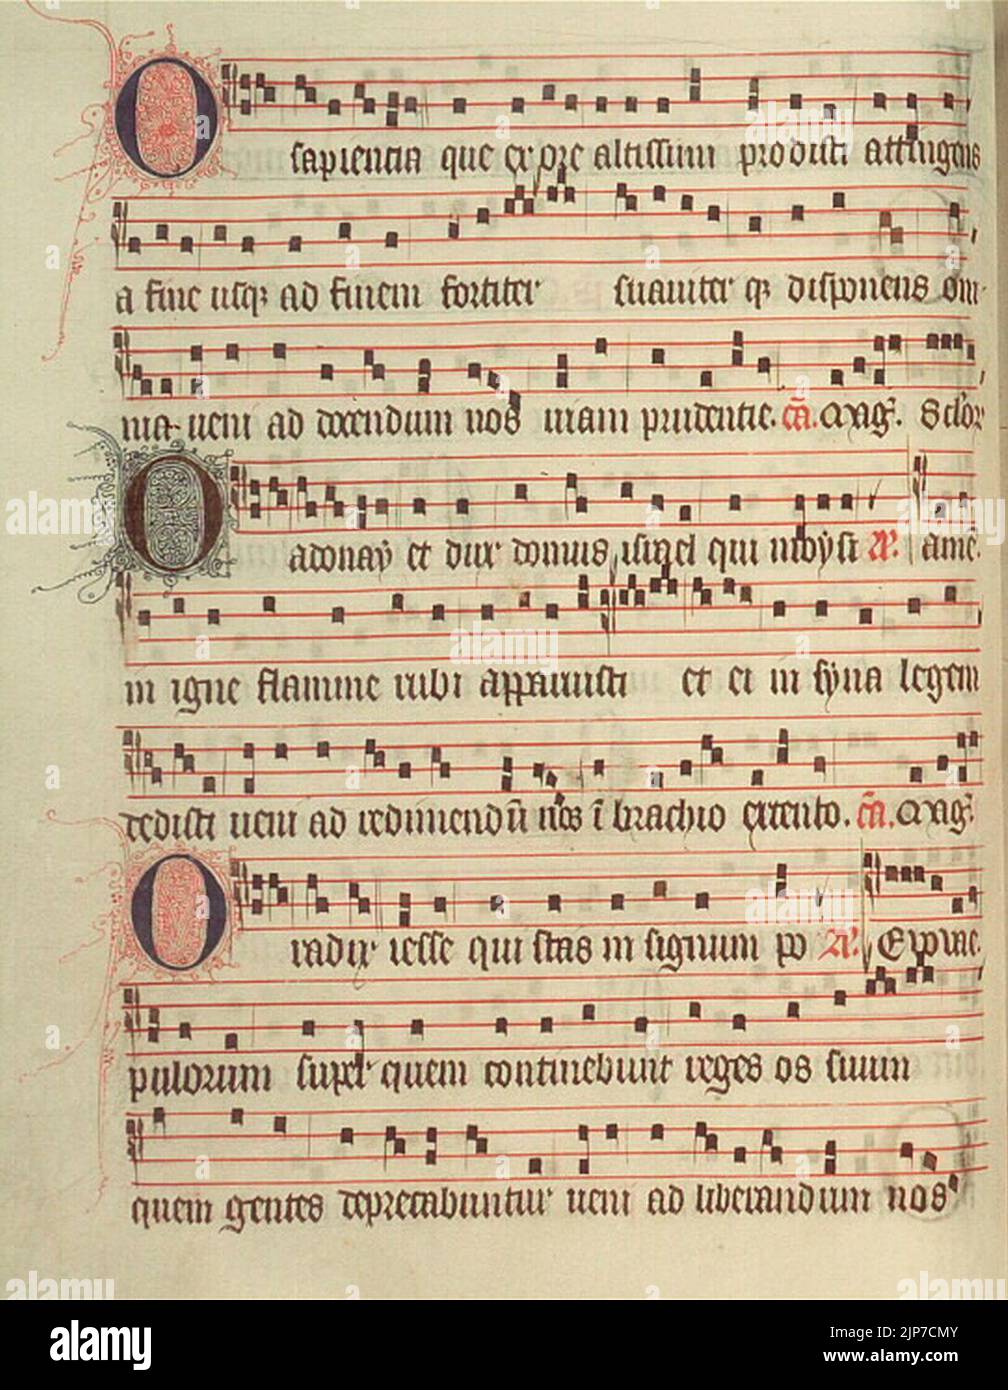 O sapientia que ex ore altissimi prodisti attingens
a fine usq; ad finem fortiter suauiter q; disponens om
nia ueni ad docendum nos uiam prudentie. cā. Mag̃.
O adonay et dux domus israel qui moysi Amē.
in igne flamme rubi apparuisti et ei in syna legem
dedisti ueni ad redimendū nos ī brachio extento. cā. Mag̃.
O radix iesse qui stas in signum po
pulorum super quem continebunt reges os suum
quem gentes deprecabuntur ueni ad liberandum nos
alamy
Image ID: 2JP7CMY
www.alamy.com